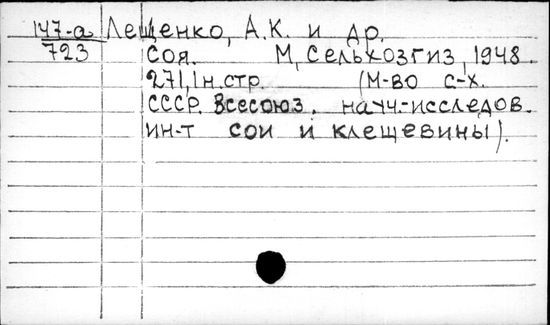 147-а Лещенко, А.К. и др.
723 Соя. М, Сельхозгиз, 1948.
271, 1 н.стр. (М-во с-х.
СССР. Всесоюз. научн-исследов.
ин-т сои и клещевины).